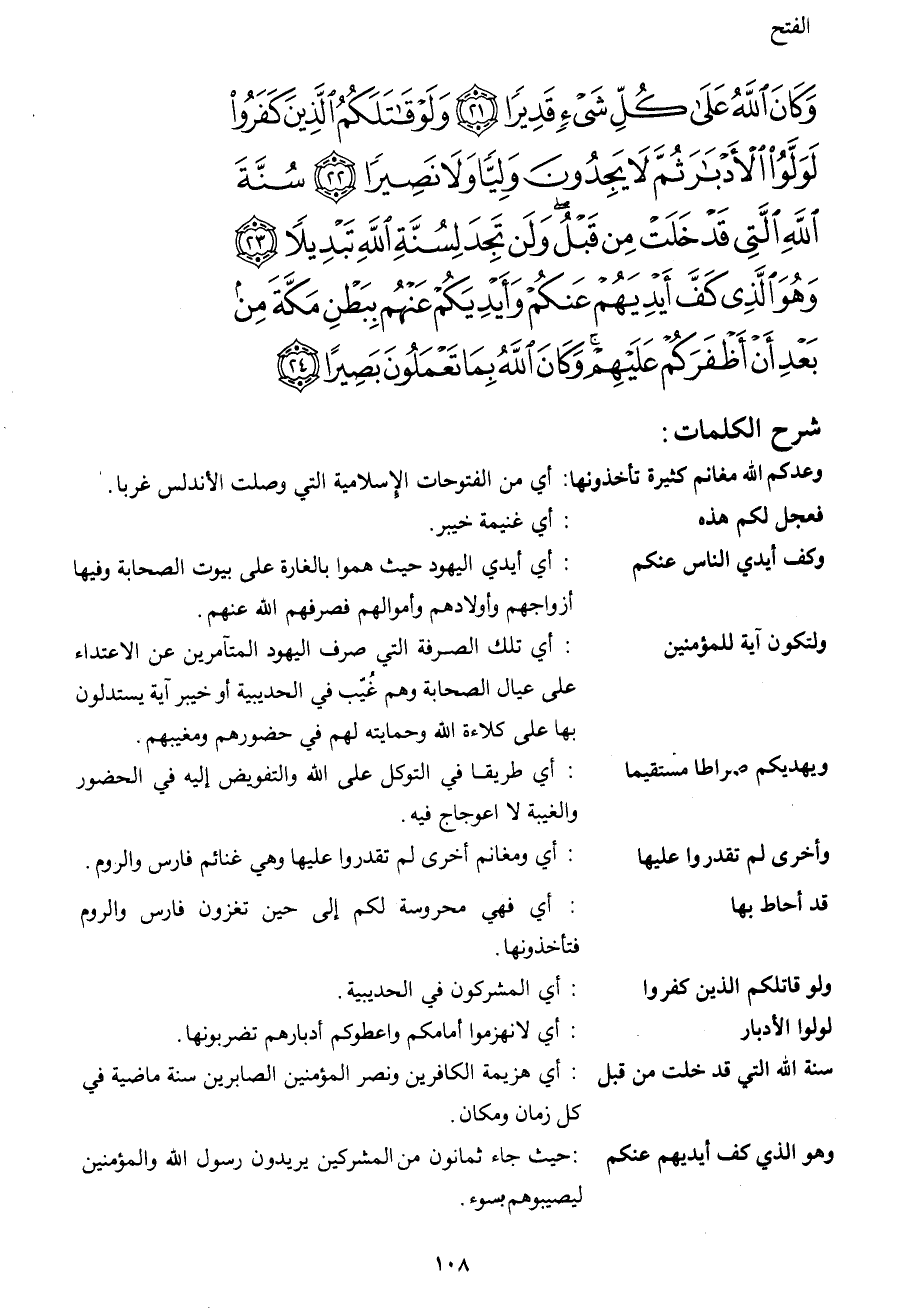 الفتح
وَكَانَ ٱللَّهُ عَلَىٰ كُلِّ شَىْءٍ قَدِيرًا ﴿٢١﴾ وَلَوْ قَـٰتَلَكُمُ ٱلَّذِينَ كَفَرُوا۟
لَوَلَّوُا۟ ٱلْأَدْبَـٰرَ ثُمَّ لَا يَجِدُونَ وَلِيًّا وَلَا نَصِيرًا ﴿٢٢﴾ سُنَّةَ
ٱللَّهِ ٱلَّتِى قَدْ خَلَتْ مِن قَبْلُ ۖ وَلَن تَجِدَ لِسُنَّةِ ٱللَّهِ تَبْدِيلًا ﴿٢٣﴾
وَهُوَ ٱلَّذِى كَفَّ أَيْدِيَهُمْ عَنكُمْ وَأَيْدِيَكُمْ عَنْهُم بِبَطْنِ مَكَّةَ مِنۢ
بَعْدِ أَنْ أَظْفَرَكُمْ عَلَيْهِمْ ۚ وَكَانَ ٱللَّهُ بِمَا تَعْمَلُونَ بَصِيرًا ﴿٢٤﴾
شرح الكلمات :
وعدكم الله مغانم كثيرة تأخذونها: أي من الفتوحات الإسلامية التي وصلت الأندلس غربا.
فعجل لكم هذه : أي غنيمة خيبر.
وكف أيدي الناس عنكم : أي أيدي اليهود حيث هموا بالغارة على بيوت الصحابة وفيها
أزواجهم وأولادهم وأموالهم فصرفهم الله عنهم.
ولتكون آية للمؤمنين : أي تلك الصرفة التي صرف اليهود المتآمرين عن الاعتداء
على عيال الصحابة وهم غُيّب في الحديبية أو خيبر آية يستدلون
بها على كلاءة الله وحمايته لهم في حضورهم ومغيبهم.
ويهديكم صراطا مستقيما : أي طريقا في التوكل على الله والتفويض إليه في الحضور
والغيبة لا اعوجاج فيه.
وأخرى لم تقدروا عليها : أي ومغانم أخرى لم تقدروا عليها وهي غنائم فارس والروم.
قد أحاط بها : أي فهي محروسة لكم إلى حين تغزون فارس والروم
فتأخذونها.
ولو قاتلكم الذين كفروا : أي المشركون في الحديبية.
لولوا الأدبار : أي لانهزموا أمامكم واعطوكم أدبارهم تضربونها.
سنة الله التي قد خلت من قبل : أي هزيمة الكافرين ونصر المؤمنين الصابرين سنة ماضية في
كل زمان ومكان.
وهو الذي كف أيديهم عنكم :حيث جاء ثمانون من المشركين يريدون رسول الله والمؤمنين
ليصيبوهم بسوء.
١٠٨